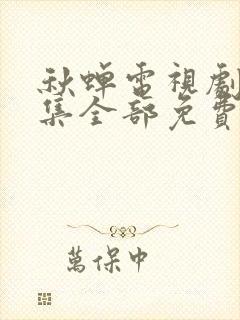 秋蟬電視劇
集全部免費
萬保中